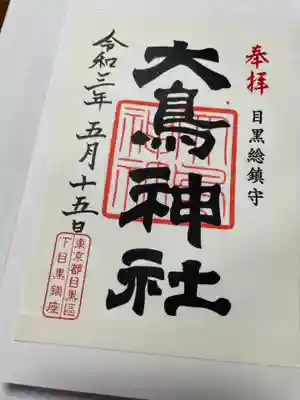 奉拝
目黒総鎮守
大鳥神社
令和三年 五月十五日
東京都目黒區
下目黒鎮座